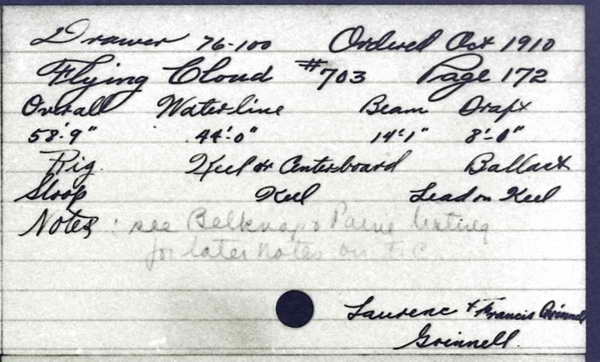 Drawer 76-100 Ordered Oct 1910
Flying Cloud #703 Page 172
Overall Waterline Beam Draft
58'.9" 44'.0" 14'.1" 8'.0"
Rig. Keel or Centerboard Ballast
Sloop Keel Lead on Keel
Notes: see Belknap & Paine listing
for later notes on F.C.
Laurence & Francis
Grinnell.